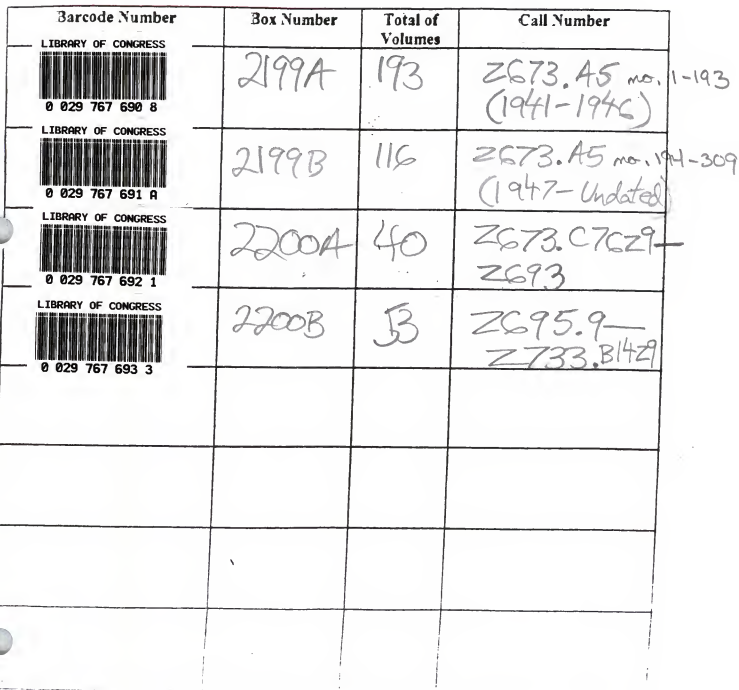 Barcode Number Box Number Total of Volumes Call Number
LIBRARY OF CONGRESS
0 029 767 690 8
2199A 193 Z673.A5 no. 1-193
(1941-1946)
LIBRARY OF CONGRESS
0 029 767 691 A
2199B 116 Z673.A5 no. 194-309
(1947- Undated)
LIBRARY OF CONGRESS
0 029 767 692 1
2200A 40 Z673.C76Z9—
Z693
LIBRARY OF CONGRESS
0 029 767 693 3
2200B 53 Z695.9—
Z733.B14Z9